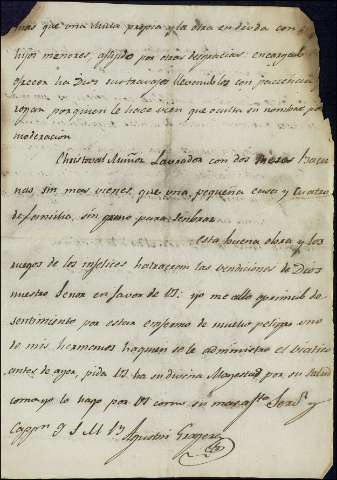 mas que una mula propia y la otra en duda con
hijos menores, aflijido por otras desgracias encargale
ofrecer ha Dios sus travajos llevandolos con paciencia
rogan por quien le hace vien que oculta su nombre por
moderacion
Christoval Muñoz Laurador con dos mesas bacu
nas, sin mas vienes, que una pequeña casa y quatro
de familia, sin grano para senbrar
esta buena obra y los
ruegos de los infelices hatraeran las vendiciones de Dios
nuestro Senor en favor de VS: yo me allo oprimido de
sentimiento por estar enfermo de mucho peligro uno
de mis hermanos haquien se le administro el viatico
antes de ayer, pida VS ha su divina Magestad por su salud
como yo lo hago por VS como su mas afto Servr y
Cappn q S M B
Agustin